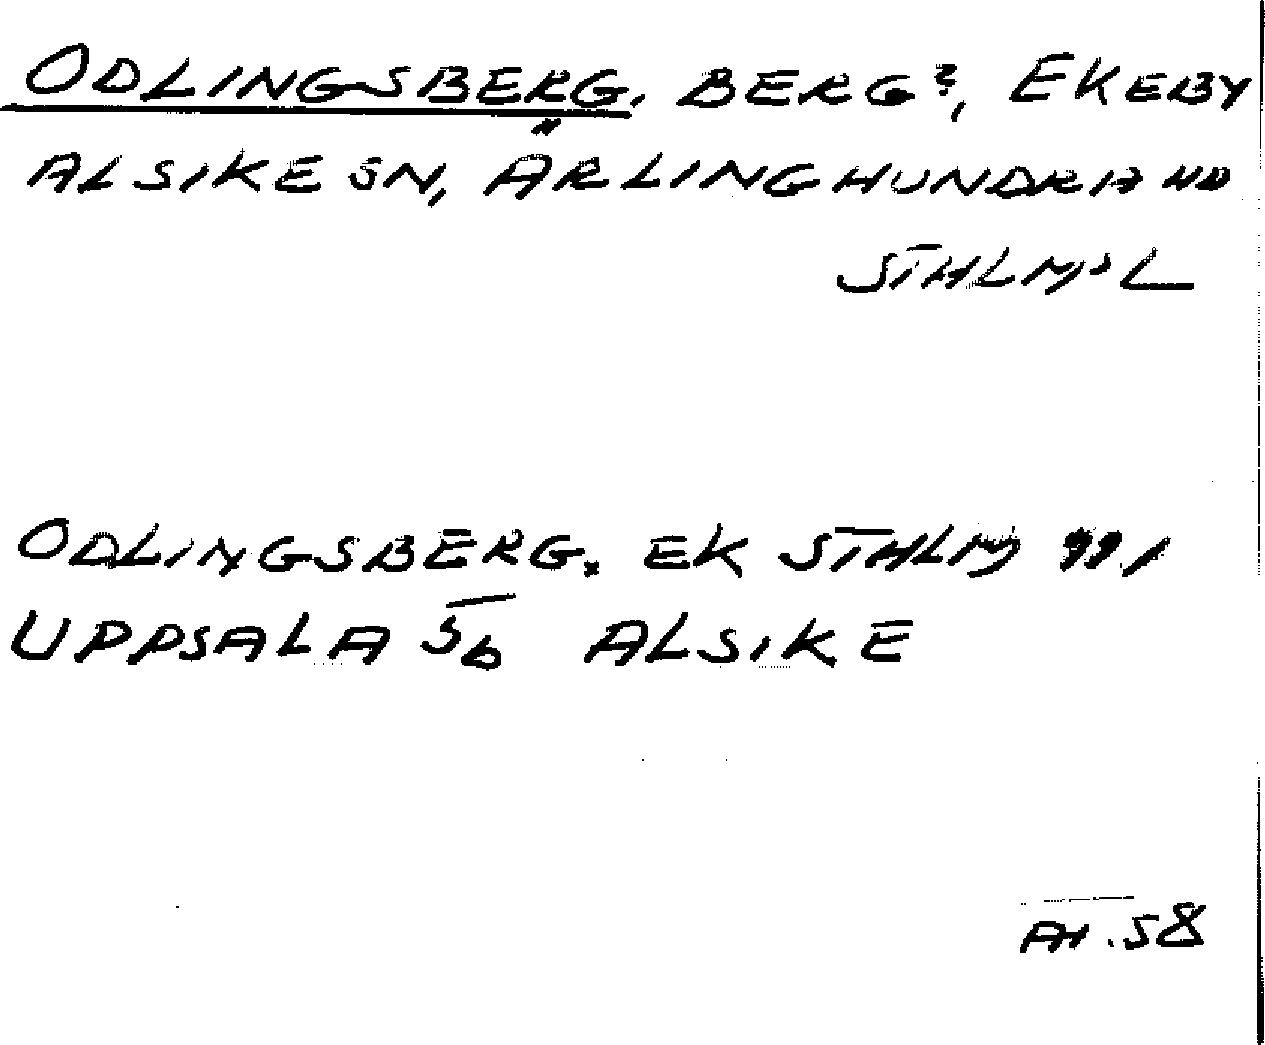 ODLINGSBERG, BERG?, EKEBY
ALSIKE SN, ÄRLINGHUNDRA HD
STHLMS L
ODLINGSBERG. EK STHLM 99/
UPPSALA 5b ALSIKE
AH.58